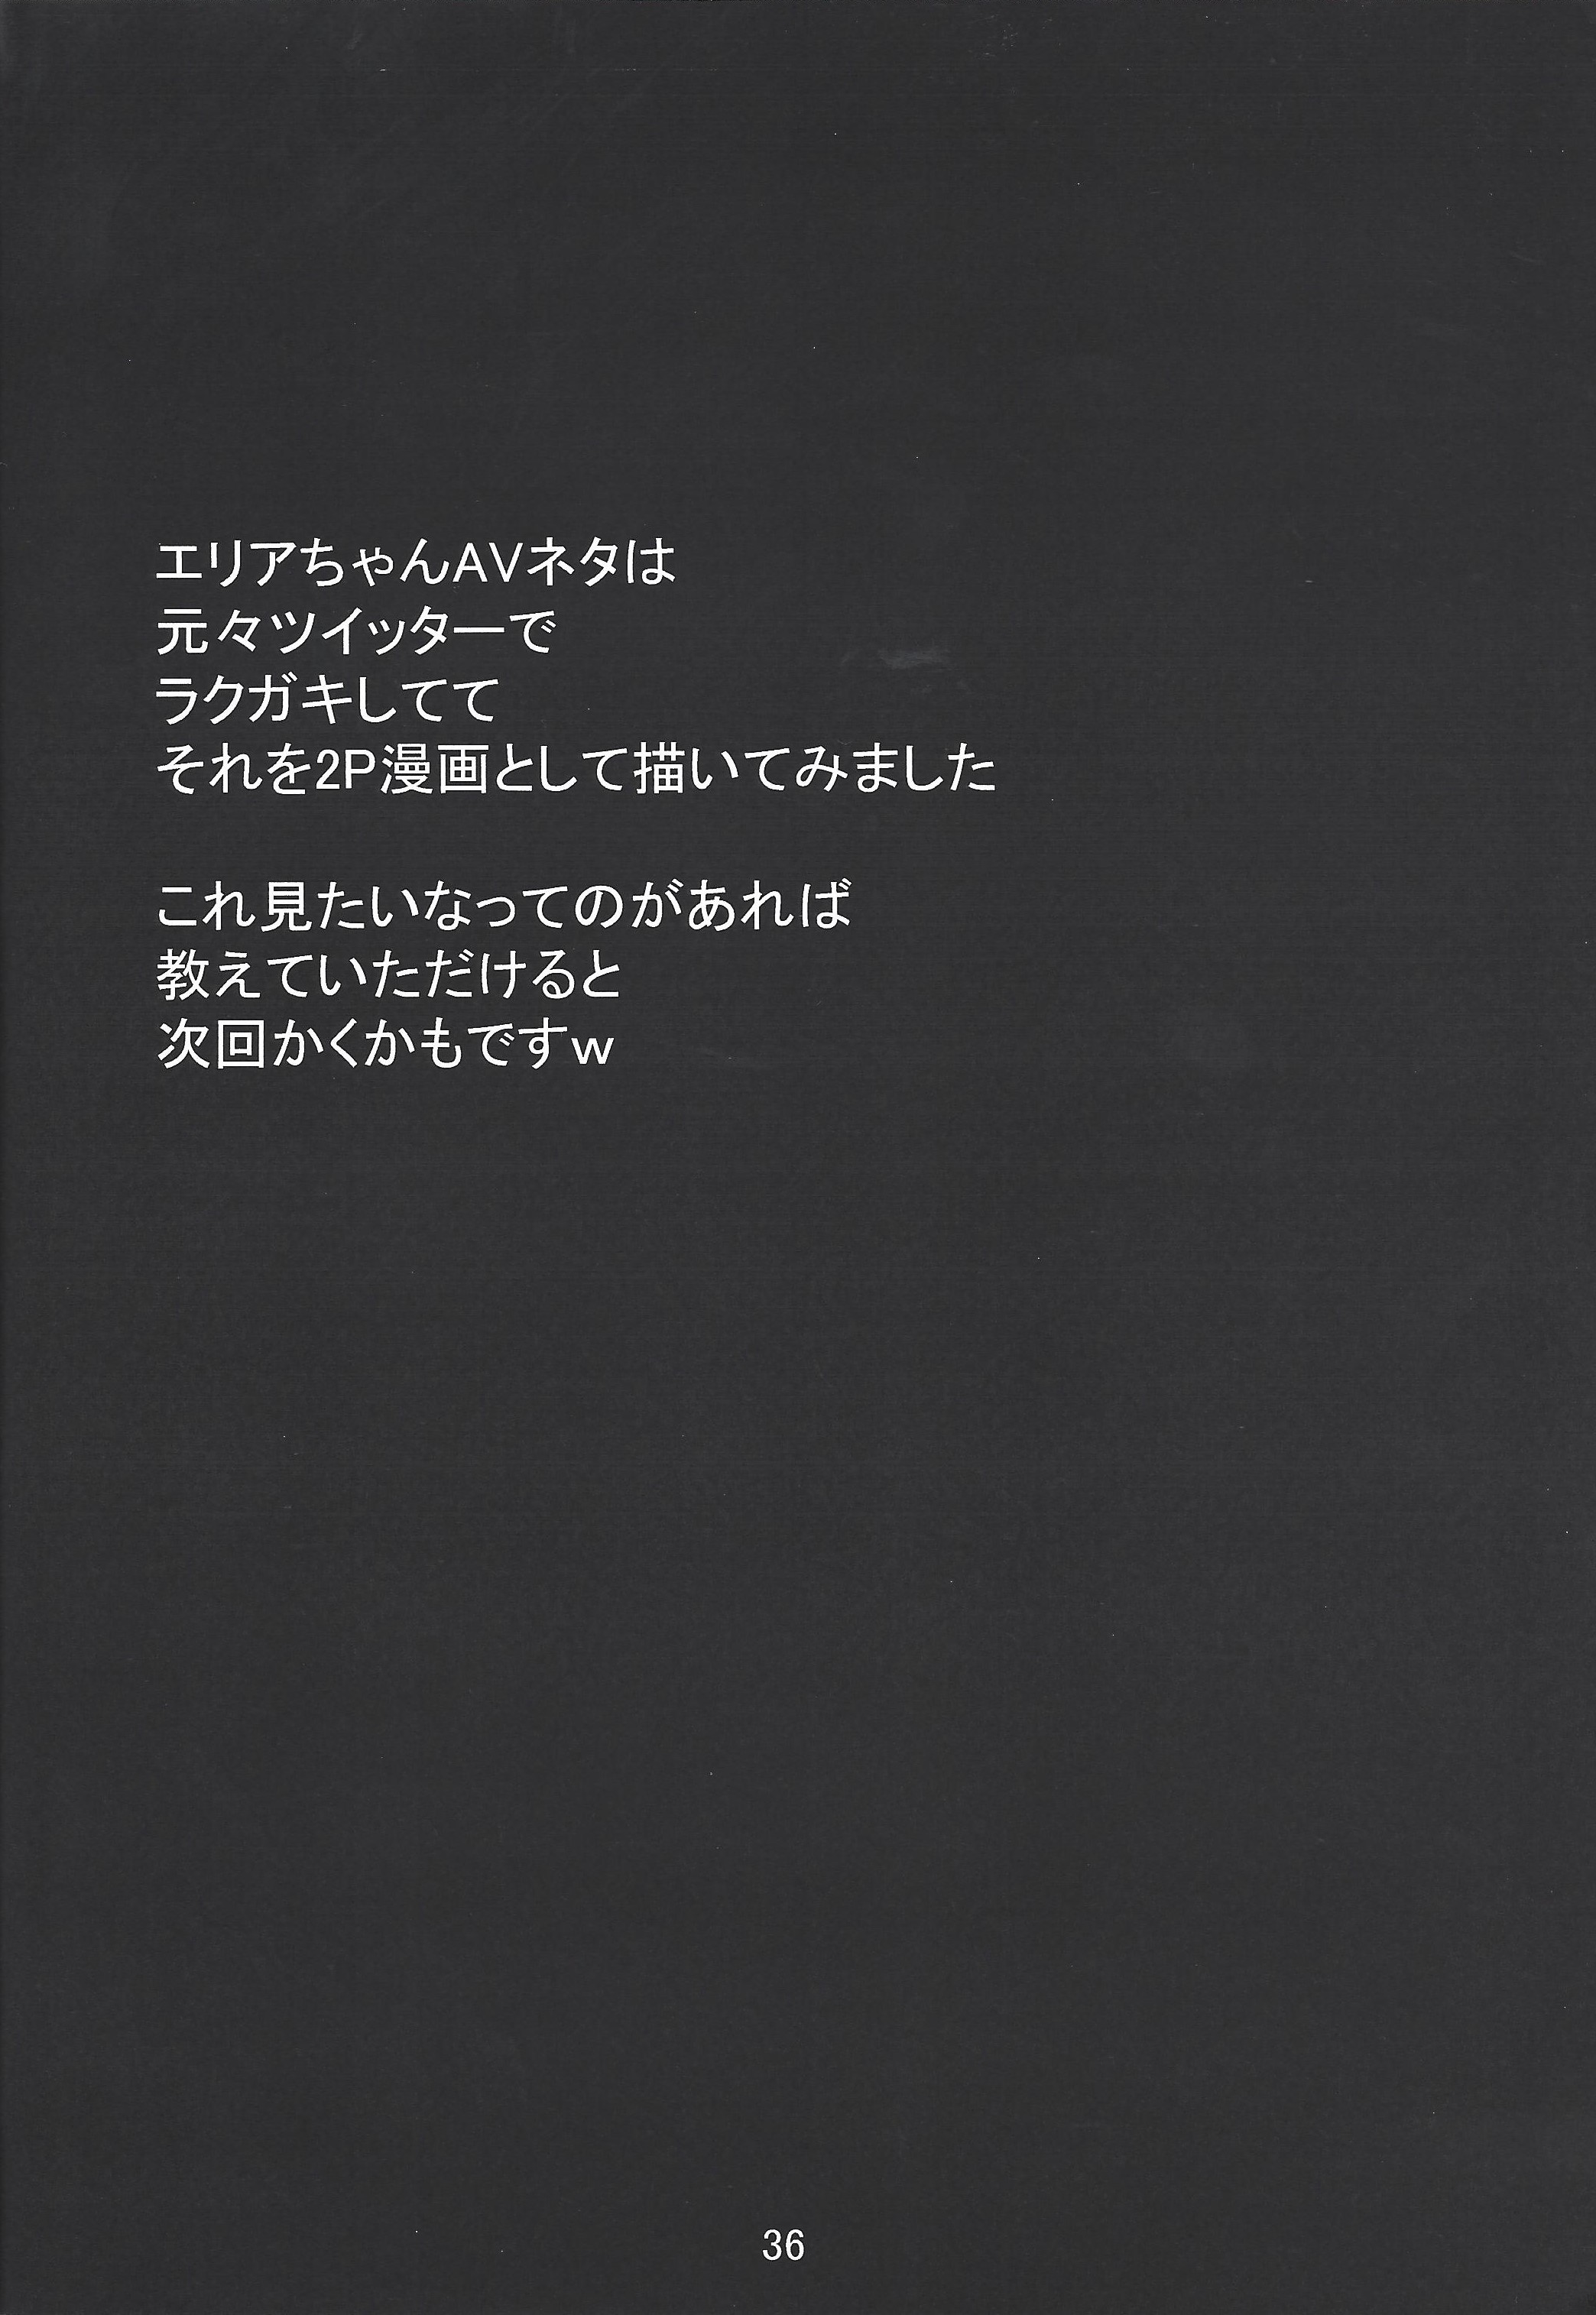 エリアちゃんAVネタは
元々ツイッターで
ラクガキしてて
それを2P漫画として描いてみました
これ見たいなってのがあれば
教えていただけると
次回かくかもですｗ
36